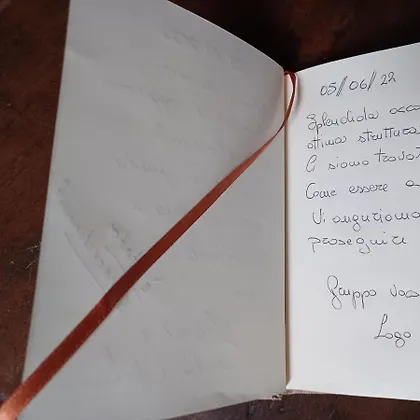 05//06//22
Splendida acco
ottima struttura
Ci siamo trovat
Come essere a
Vi auguriamo
proseguire
Gruppo vac
Logo